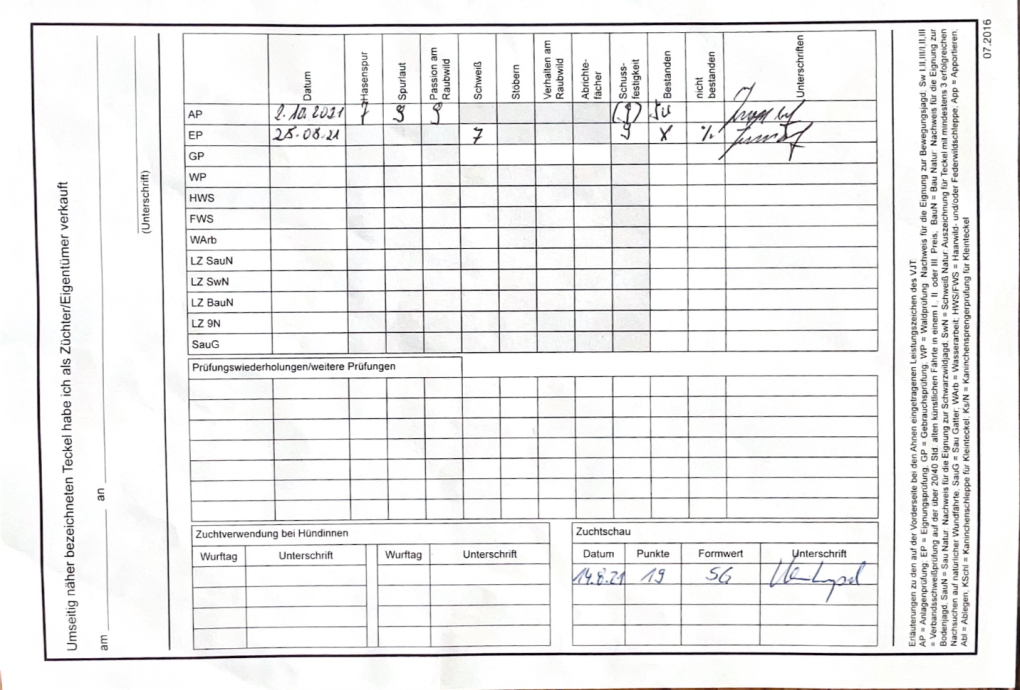 Umseitig näher bezeichneten Teckel habe ich als Züchter/Eigentümer verkauft
am an
(Unterschrift)
Datum Hasenspur Spurlaut Passion am Raubwild Schweiß Stöbern Verhalten am Raubwild Abrichte-fächer Schuss-festigkeit Bestanden nicht bestanden Unterschriften
AP 2.10.2021 7 9 9 (9) Ju
EP 28.08.21 7 9 X %
GP
WP
HWS
FWS
WArb
LZ SauN
LZ SwN
LZ BauN
LZ 9N
SauG
Prüfungswiederholungen/weitere Prüfungen
Zuchtverwendung bei Hündinnen
Wurftag Unterschrift Wurftag Unterschrift
Zuchtschau
Datum Punkte Formwert Unterschrift
14.8.21 19 SG
Erläuterungen zu den auf der Vorderseite bei den Ahnen eingetragenen Leistungszeichen des VJT
AP = Anlagenprüfung, EP = Eignungsprüfung, GP = Gebrauchsprüfung, WP = Waldprüfung Nachweis für die Eignung zur Bewegungsjagd, Sw I,II,III/I,II,III
= Verbandsschweißprüfung auf der über 20/40 Std. alten künstlichen Fährte in einem I., II. oder III. Preis, BauN = Bau Natur Nachweis für die Eignung zur
Bodenjagd, SauN = Sau Natur. Nachweis für die Eignung zur Schwarzwildjagd, SwN = Schweiß Natur. Auszeichnung für Teckel mit mindestens 3 erfolgreichen
Nachsuchen auf natürlicher Wundfährte, SauG = Sau Gatter, WArb = Wasserarbeit, HWS/FWS = Haarwild- und/oder Federwildschleppe, App = Apportieren,
Abl = Ablegen, KSchl = Kaninchenschleppe für Kleinteckel, Ks/N = Kaninchensprengerprüfung für Kleinteckel
07.2016